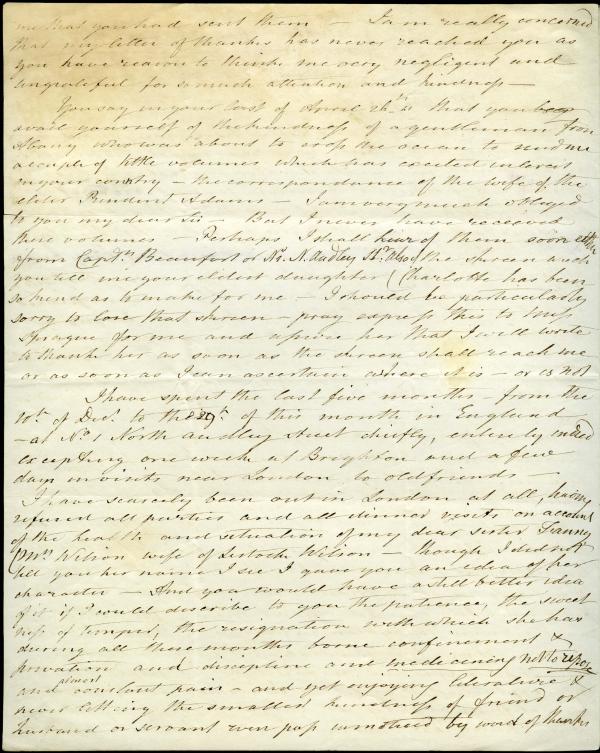 me that you had sent them — I am really concerned
that my letter of thanks has never reached you as
you have reason to think me very negligent and
ungrateful for so much attention and kindness —
You say in your last of April 26th that you
avail yourself of the kindness of a gentleman from
Albany who was about to cross the ocean to send me
a couple of little volumes which has excited interest
in your country — the correspondance of the wife of the
elder President Adams — I am very much obliged
to you my dear Sir — But I never have received
these volumes — Perhaps I shall hear of them soon either
from Captn. Beaufort or No. 1. N. Audley St. Also the screen which
you tell me your eldest daughter (Charlotte has been
so kind as to make for me — I should be particularly
sorry to lose that screen — pray express this to Miss
Sprague for me and assure her that I will write
to thank her as soon as the screen shall reach me
or as soon as I can ascertain where it is — or is not
I have spent the last five months — from the
10th. of Decr. to the of this month in England
— at No 1 North Audley Street chiefly, entirely indeed
excepting one week at Brighton and a few
days in visits near London to old friends —
I have scarcely been out in London at all, having
refused all parties and all dinner visits on account
of the health and situation of my dear sister Fanny
(Mrs Wilson wife of Lestock Wilson — though I did not
tell you her name I see I gave you an idea of her
character — And you would have a still better idea
of it if I could describe to you the patience, the sweet
ness of temper, the resignation with which she has
during all these months borne confinement &
privation and discipline and medicining not to repose
and almost constant pain — and yet enjoying literature &
never letting the smallest kindness of friend or
husband or servant even pass unnoticed by word of thanks